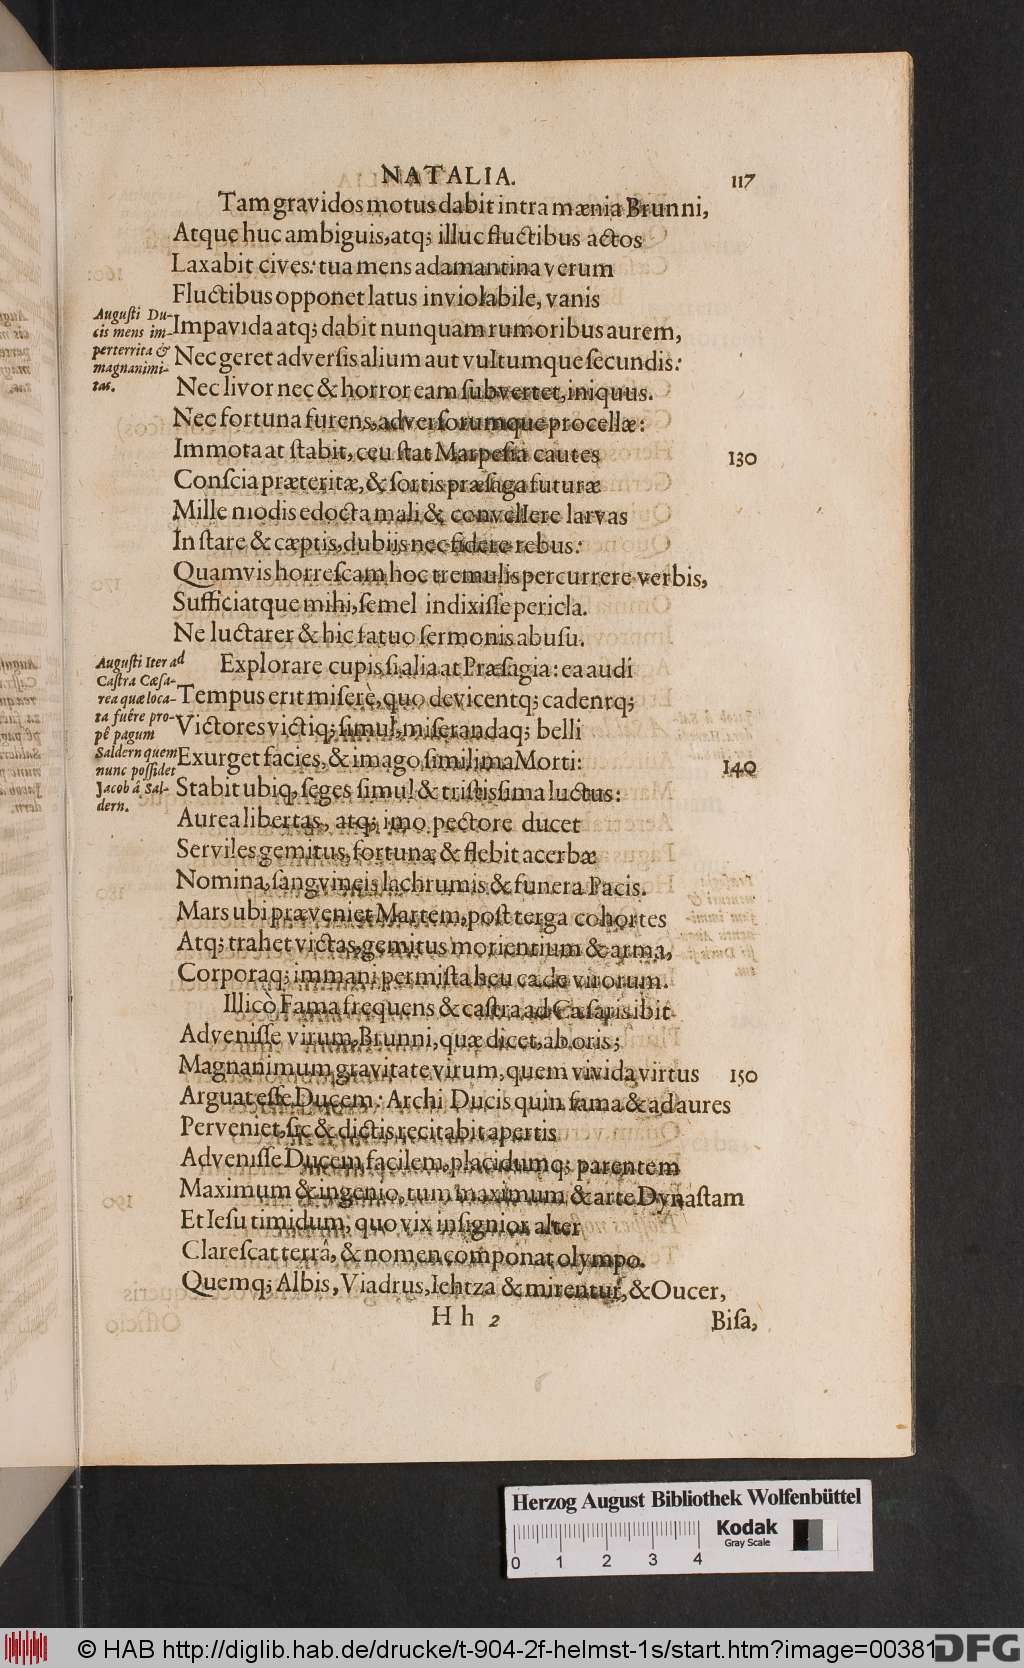 NATALIA. 117
Tam gravidos motus dabit intra mænia Brunni,
Atque huc ambiguis, atq; illuc fluctibus actos
Laxabit cives: tua mens adamantina verum
Fluctibus opponet latus inviolabile, vanis
Impavida atq; dabit nunquam rumoribus aurem,
Nec geret adversis alium aut vultumque secundis:
Nec livor nec & horror eam subvertet, iniquus.
Nec fortuna furens, adversorumque procellæ:
Immota at stabit, ceu stat Marpesia cautes 130
Conscia præteritæ, & sortis præsaga futuræ
Mille modis edocta mali & convellere larvas
In stare & cæptis, dubiis nec fidere rebus:
Quamvis horrescam hoc tremulis percurrere verbis,
Sufficiatque mihi, semel indixisse pericla.
Ne luctarer & hic fatuo sermonis abusu.
Explorare cupis si alia at Præsagia: ea audi
Tempus erit miserè, quo devicentq; cadentq;
Victores victiq; simul, miserandaq; belli
Exurget facies, & imago simillima Morti: 140
Stabit ubiq, seges simul & tristissima luctus:
Aurea libertas, atq; imo pectore ducet
Serviles gemitus, fortunæ & flebit acerbæ
Nomina, sangvineis lachrumis & funera Pacis.
Mars ubi præveniet Martem, post terga cohortes
Atq; trahet victas, gemitus morientium & arma,
Corporaq; immani permista heu cæde virorum.
Illicò Fama frequens & castra ad Cæsaris ibit
Advenisse virum, Brunni, quæ dicet, ab oris;
Magnanimum gravitate virum, quem vivida virtus 150
Arguat esse Ducem: Archi Ducis quin fama & ad aures
Perveniet, sic & dictis recitabit apertis
Advenisse Ducem facilem, placidumq; parentem
Maximum & ingenio, tum maximum & arte Dynastam
Et Iesu timidum, quo vix insignior alter
Clarescat terrâ, & nomen componat olympo.
Quemq; Albis, Viadrus, Iehtza & mirentur, & Oucer,
H h 2 Bisa,
Augusti Du-
cis mens im-
perterrita &
magnanimi-
tas.
Augusti Iter ad
Castra Cæsa-
rea quæ loca-
ta fuêre pro-
pê pagum
Saldern quem
nunc possidet
Jacob â Sal-
dern.
Herzog August Bibliothek Wolfenbüttel
0 1 2 3 4
Kodak
Gray Scale
© HAB http://diglib.hab.de/drucke/t-904-2f-helmst-1s/start.htm?image=00381
DFG